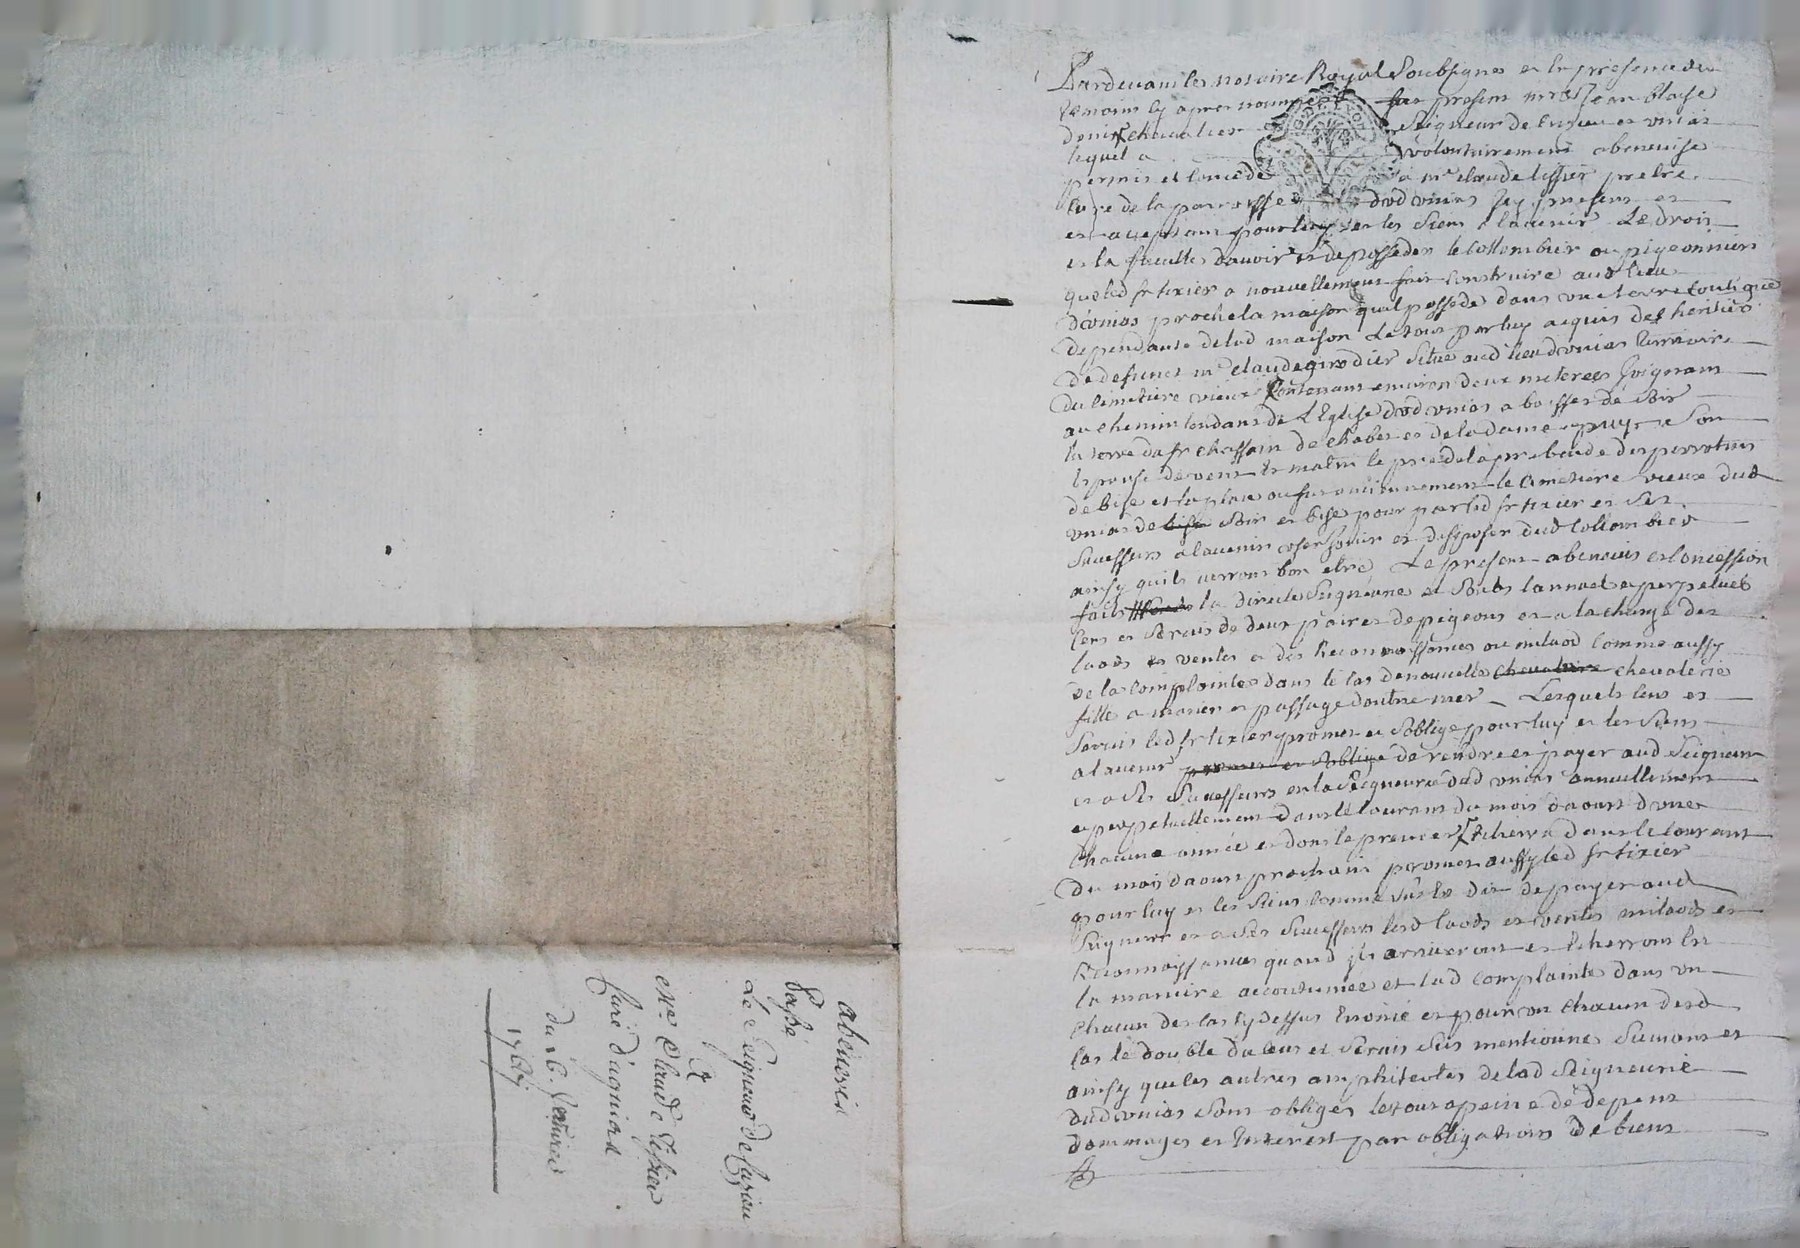 Pardevant les notaire Royal soubsignes et en presence des
temoins cy apres nommes fut presens mre Jean blaise
denis chevalier seigneur de Cuzieu et unias
lequel a volontairement abenevise
permis et concede a mr claude tissier prebtre
cure de la parroisse dud unias Icy present et
et acceptant pour luy et les siens a lavenir Le droit
et la faculte davoir et de posseder le Collombier ou pigeonnier
que led sr tixier a nouvellement fait construire aud lieu
dunias proche la maison quil possede dans une terre contigue
dependante de lad maison Le tout par luy acquis des heritiers
de defunct mr claude girodier situe aud lieu dunias terroir
du cimetiere vieux Contenant environ deux meterees Joignant
au chemin tendant de L'Eglise dud unias a de soir
la terre du sr chassain de chabet et de la dame puy son
epouse de vent et matin le pre de la prebende des perrotins
de bise et la place ou fut anciennement le Cimetiere vieux dud
unias de bise soir et bise pour par led sr tixier et ses
successeurs a lavenir user jouir et disposer dud Collombier
ainsy quils verront bon etre Le present abenevis et Concession
faits la directe Seigneurie et soubs lannuel et perpetuel
cens et servis de deux paires de pigeons et a la charge des
laods et ventes et des Reconnoissances ou milaod comme aussy
de la Complainte dans le cas de nouvelle chevalerie chevalerie
fille a marier et passage doutre mer Lesquels cens et
servis led sr tixier promet et soblige pour luy et les siens
a lavenir promet et soblige de rendre et payer aud Seigneur
et a ses successeurs en la Seigneurie dud unias annuellement
et perpetuellement dans le courant du mois daoust dune
chacune annee et dont le premier Echerra dans le courant
du mois daoust prochain promet aussy led sr tixier
pour luy et les siens comme sus est dit de payer aud
Seigneur et a ses successeurs lesd laods et ventes milaods et
Reconnoissances quand ils arriveront et Echerront En
la maniere accoutumee et lad complainte dans un
chacun des cas cy dessus Enonce et pour un chacun desd
cas le double du cens et servis sus mentionnes suivant et
ainsy que les autres amphiteotes de lad Seigneurie
dud unias sont obliges le tout a peine de depens
dommages et Interest par obligations de biens
abenevis
Passé
Le Seigneur de Cuzieu
A
mre Claude tissier
Curé d'Unias
du 16. Janvier